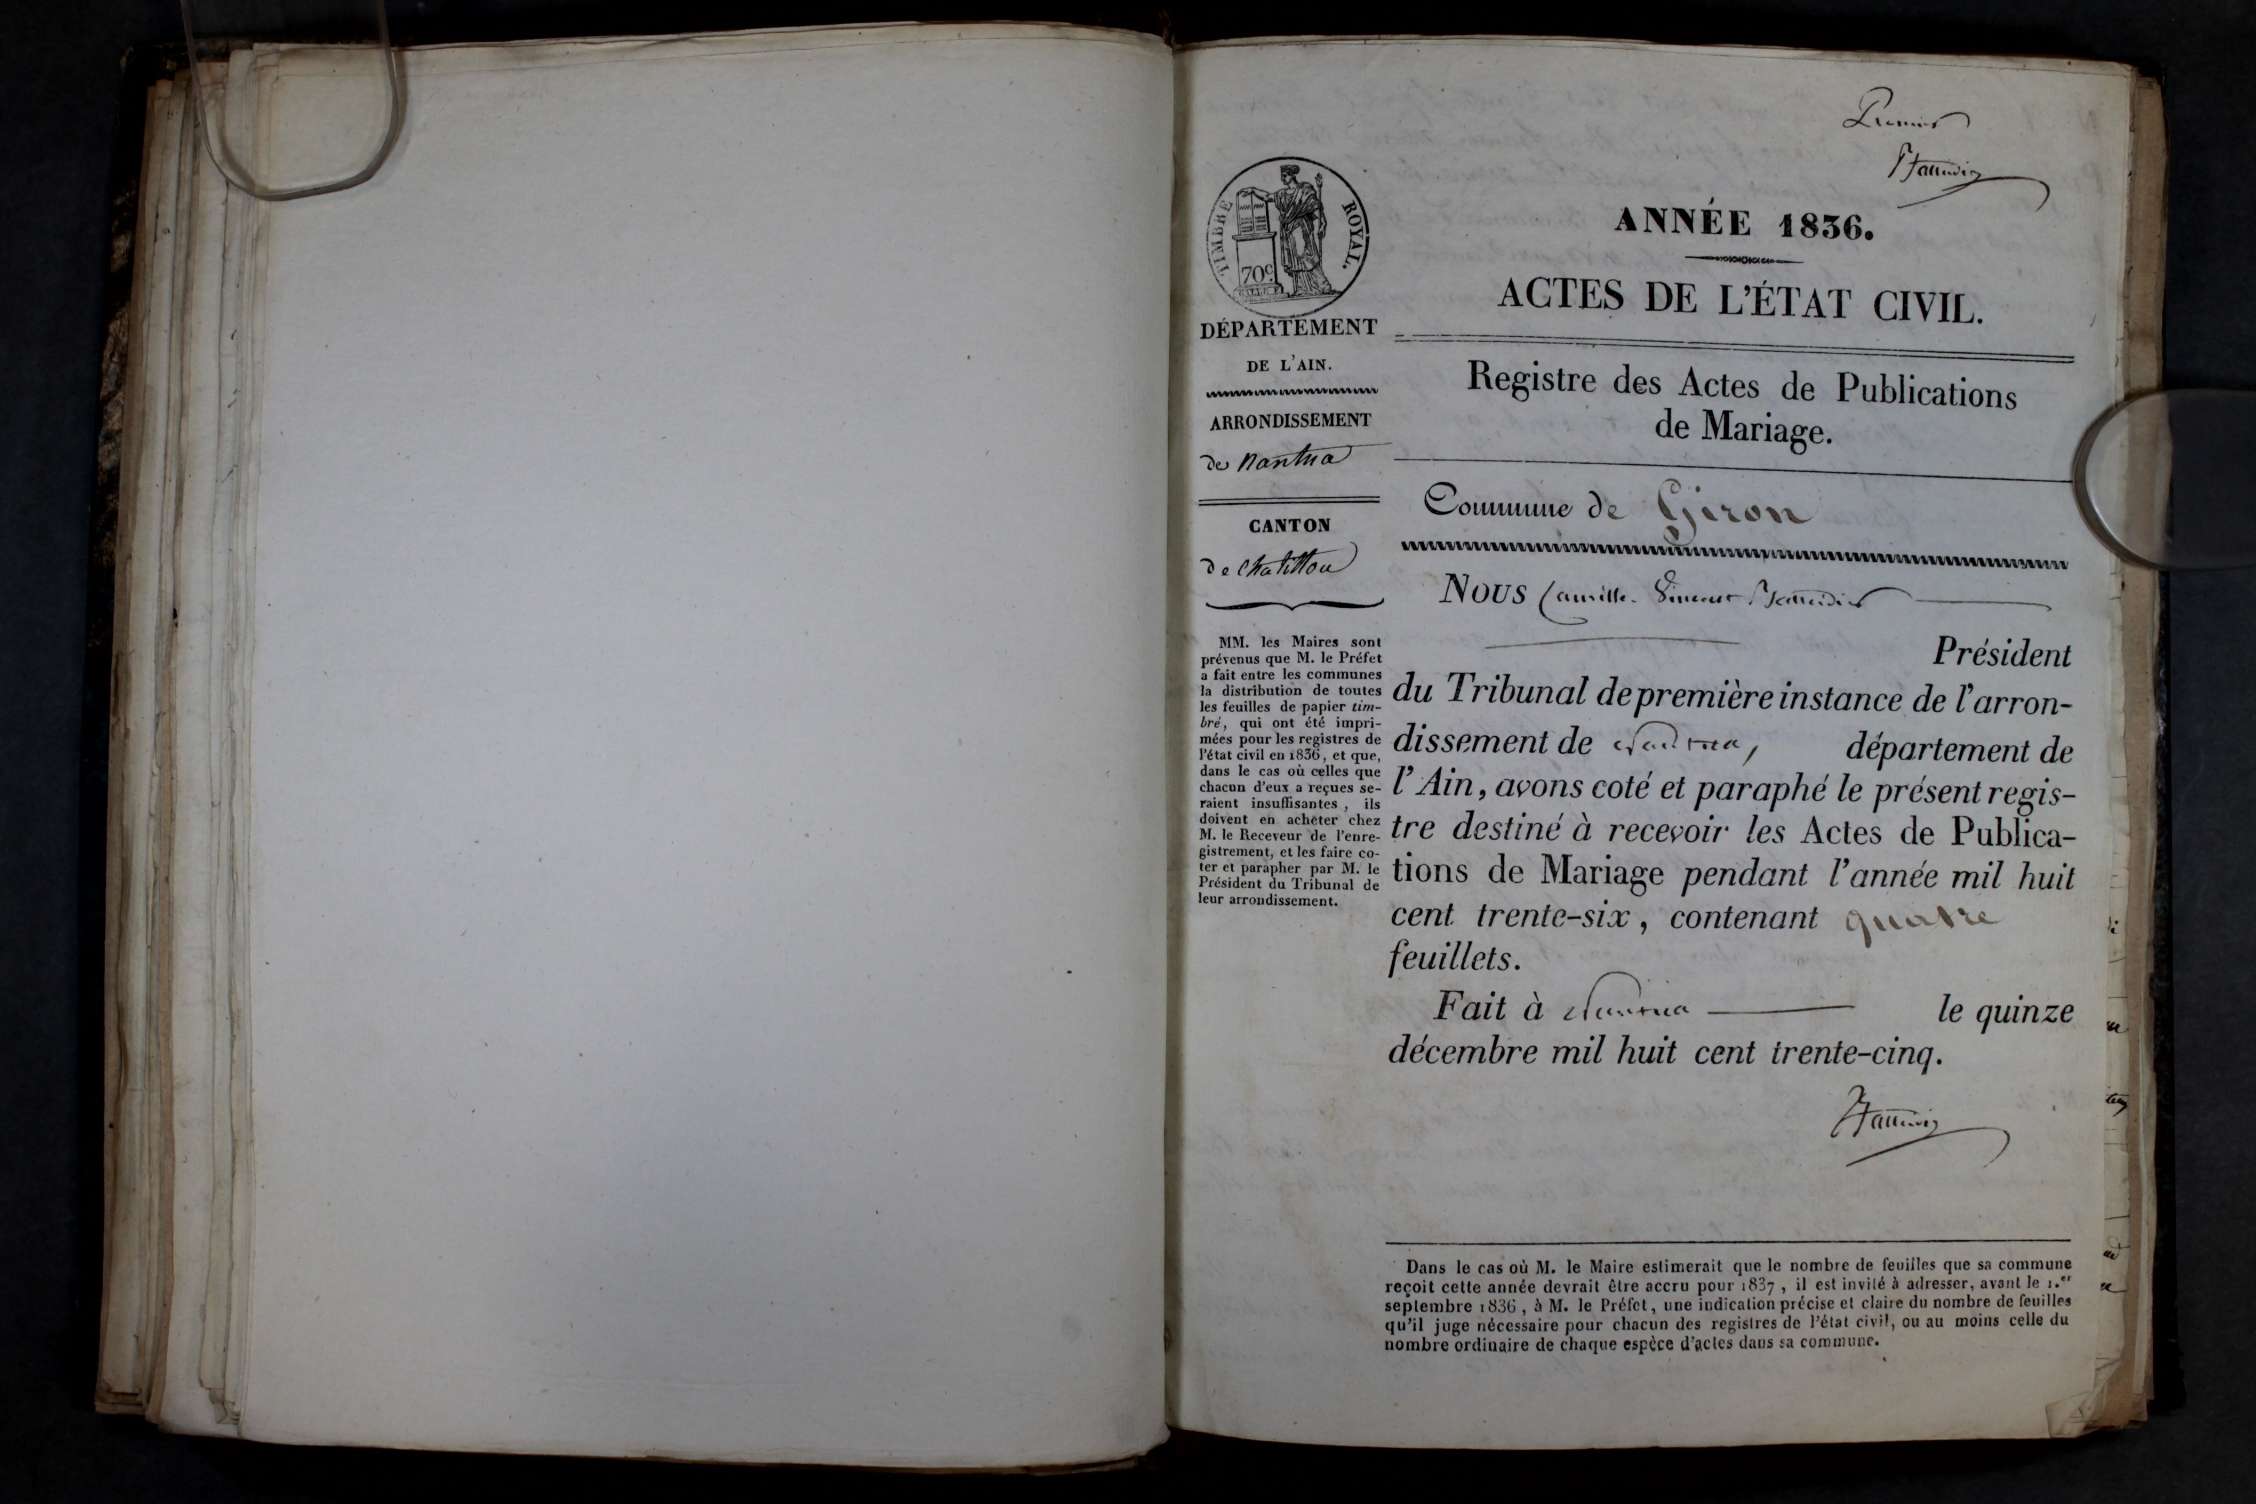 Premier
TIMBRE ROYAL.
70c.
ANNÉE 1836.
ACTES DE L'ÉTAT CIVIL.
DÉPARTEMENT
DE L'AIN.
ARRONDISSEMENT
de Nantua
CANTON
de Chatillon
MM. les Maires sont
prévenus que M. le Préfet
a fait entre les communes
la distribution de toutes
les feuilles de papier tim-
bré, qui ont été impri-
mées pour les registres de
l'état civil en 1836, et que,
dans le cas où celles que
chacun d'eux a reçues se-
raient insuffisantes, ils
doivent en acheter chez
M. le Receveur de l'enre-
gistrement, et les faire co-
ter et parapher par M. le
Président du Tribunal de
leur arrondissement.
Registre des Actes de Publications
de Mariage.
Commune de Giron
NOUS Camille
Président
du Tribunal de première instance de l'arron-
dissement de Nantua, département de
l'Ain, avons coté et paraphé le présent regis-
tre destiné à recevoir les Actes de Publica-
tions de Mariage pendant l'année mil huit
cent trente-six, contenant quatre
feuillets.
Fait à Nantua le quinze
décembre mil huit cent trente-cinq.
Dans le cas où M. le Maire estimerait que le nombre de feuilles que sa commune
reçoit cette année devrait être accru pour 1837, il est invité à adresser, avant le 1.er
septembre 1836, à M. le Préfet, une indication précise et claire du nombre de feuilles
qu'il juge nécessaire pour chacun des registres de l'état civil, ou au moins celle du
nombre ordinaire de chaque espèce d'actes dans sa commune.